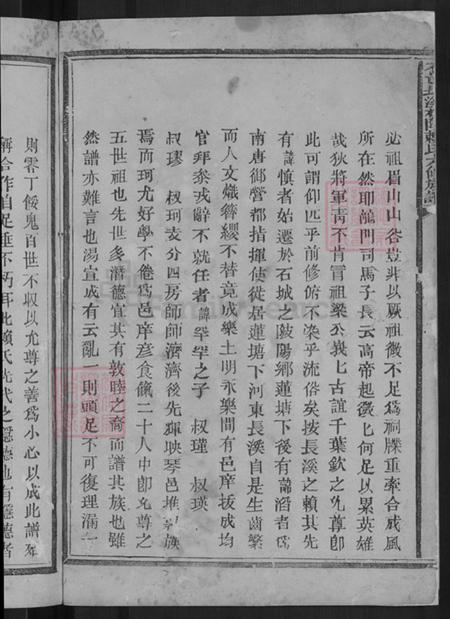 必祖眉山山谷豈斗以厥祖微不足為祠牒重牽合戚風
所在然耶龍門司馬子長云高帝起微七何足以累英雄
哉狄將軍青不肯言祖梁公峩七古誼千葉欽之允尊即
此可謂仰匹乎前修俯不染乎流俗矣按長溪之賴其先
有諱慎者始遷於石城之陂陽鄉蓮塘下後有諱滔者為
南唐御營都指揮使徙居蓮塘下河東長溪自是生齒繁
而人文熾簪纓不替竟成樂土明永樂間有邑庠拔成均
官拜參或辭不就任者諱罕罕之子 叔瑾 叔瑛
叔璆 叔珂支分四房師師濟濟後先輝映琴邑堆 族
焉而珂尤好學不倦為邑庠彥食餼二十人中即允尊之
五世祖也先世多潛德宜其有敦睦之裔而譜其族也雖
然譜亦難言也湯宣成有云亂一則頭足不可復理漏一
則零丁餒鬼百世不収以允尊之善為小心以成此譜
稱合作自足垂不朽耳此賴氏先代之隱德也有隱德者